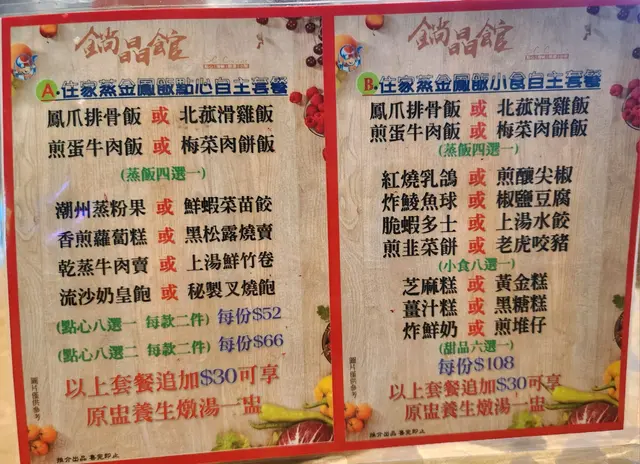 鋿晶館
A.住家蒸金鳳飯點心自主套餐
鳳爪排骨飯 或 北菰滑雞飯
煎蛋牛肉飯 或 梅菜肉餅飯
(蒸飯四選一)
潮州蒸粉果 或 鮮蝦菜苗餃
香煎蘿蔔糕 或 黑松露燒賣
乾蒸牛肉賣 或 上湯鮮竹卷
流沙奶皇飽 或 秘製叉燒飽
(點心八選一 每款二件) 每份$52
(點心八選二 每款二件) 每份$66
以上套餐追加$30可享
原盅養生燉湯一盅
圖片僅供參考
推介出品 售完即止
鋿晶館
B.住家蒸金鳳飯小食自主套餐
鳳爪排骨飯 或 北菰滑雞飯
煎蛋牛肉飯 或 梅菜肉餅飯
(蒸飯四選一)
紅燒乳鴿 或 煎釀尖椒
炸鯪魚球 或 椒鹽豆腐
脆蝦多士 或 上湯水餃
煎韭菜餅 或 老虎咬豬
(小食八選一)
芝麻糕 或 黃金糕
薑汁糕 或 黑糖糕
炸鮮奶 或 煎堆仔
(甜品六選一)
每份$108
以上套餐追加$30可享
原盅養生燉湯一盅
圖片僅供參考
推介出品 售完即止